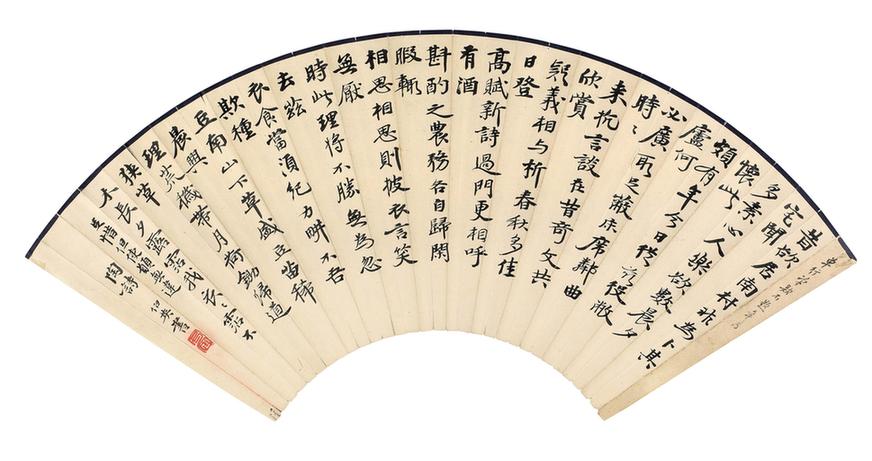 昔欲居南村非為卜其
宅聞
多素心人樂欲數晨夕
懷此
頗有年今日從茲役敝
廬何
必廣取足蔽床席鄰曲
時〻
来抗言談在昔奇文共
欣賞
疑義相与析春秋多佳
日登
高賦新詩過門更相呼
有酒
斟酌之農務各自歸閑
暇輒
相思相思則披衣言笑
無厭
時此理將不勝無為忽
去茲
衣食當須紀力畊不吾
欺種
豆南山下草盛豆苗稀
晨興
理荒穢帶月荷鋤歸道
狹草
木長夕露沾我衣〻沾不
足惜但使願無違
陶詩 伯英書